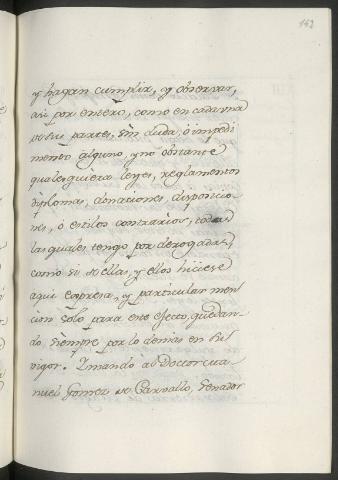 142
y hagan cumplir, y observar,
asi por entero, como en cada una
de sus partes, sin duda, ó impedi
mento alguno, y nó obstante
qualesquiera leyes, reglamentos
diplomas, donaciones, disposicio
nes, ó estilos contrarios, todas
las quales tengo por derogadas,
como si de ellas, y ellos hiciese
aqui expresa, y particular men
cion solo para este efecto, quedan
do, siempre por lo demas en su
vigor. Y mando al Doctor Ma
nuel Gomez de Carvallo, Senador